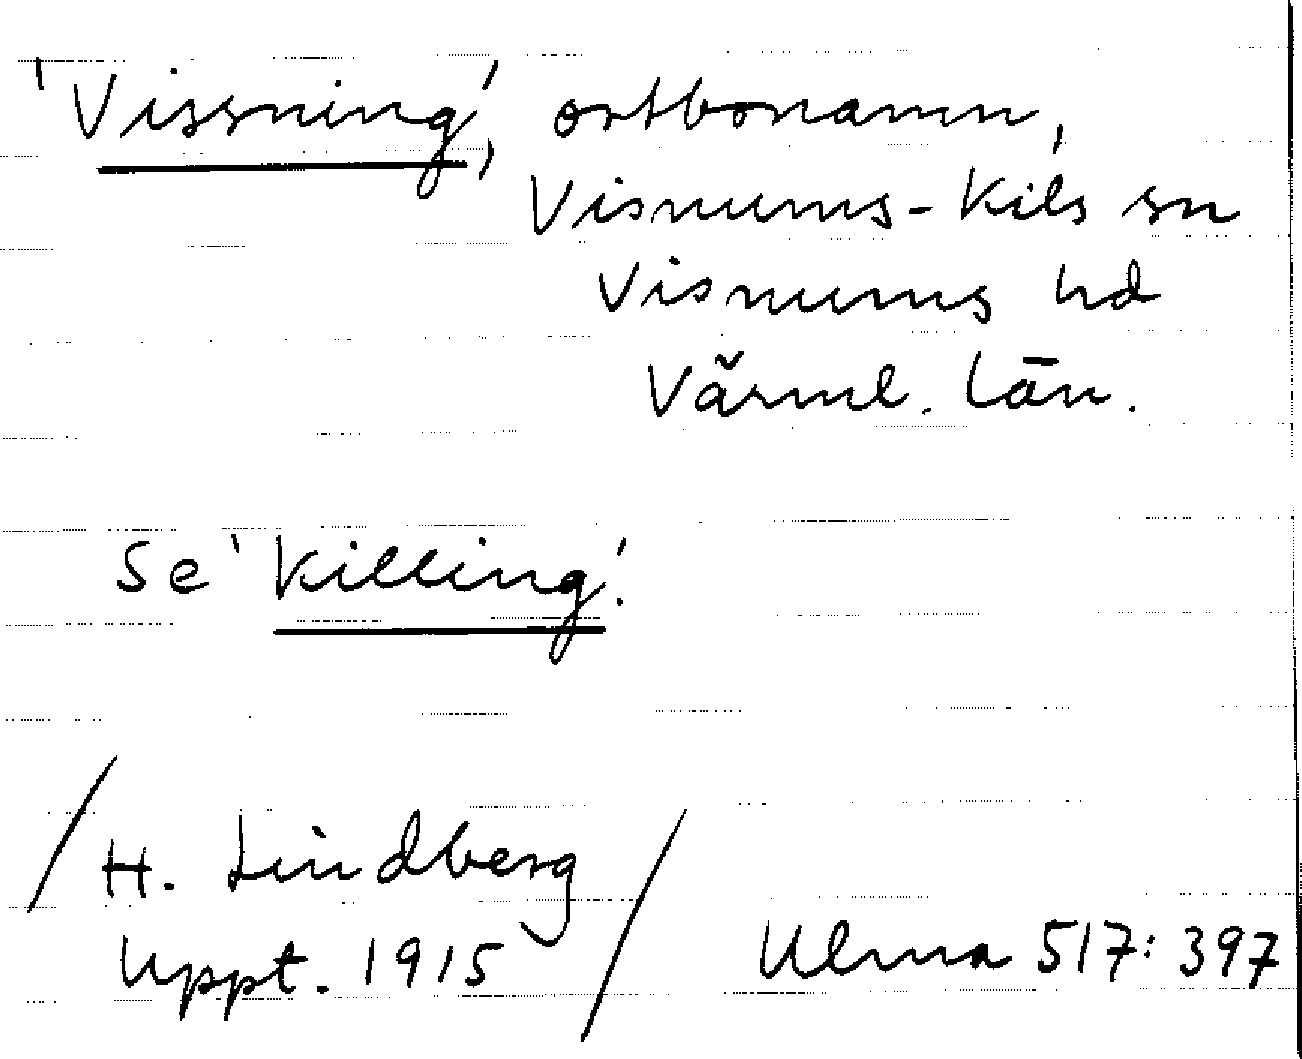 'Vissning', ortbonamn,
Visnums-Kils sn
Visnums hd
Värml. län.
Se 'Killing'.
/H. Lindberg
Uppt. 1915/ Ulma 517:397